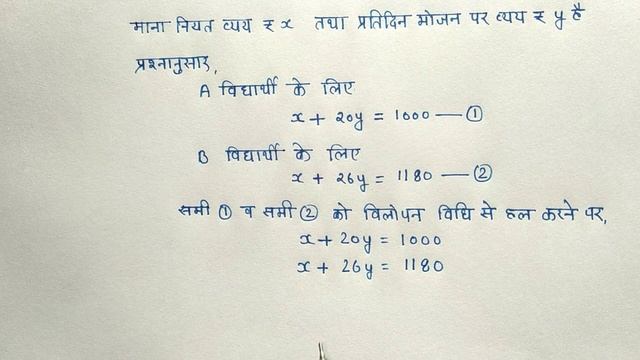 माना नियत व्यय ₹ x तथा प्रतिदिन भोजन पर व्यय ₹ y है
प्रश्नानुसार,
A विद्यार्थी के लिए
x + 20y = 1000 — ①
B विद्यार्थी के लिए
x + 26y = 1180 — ②
समी ① व समी ② को विलोपन विधि से हल करने पर,
x + 20y = 1000
x + 26y = 1180